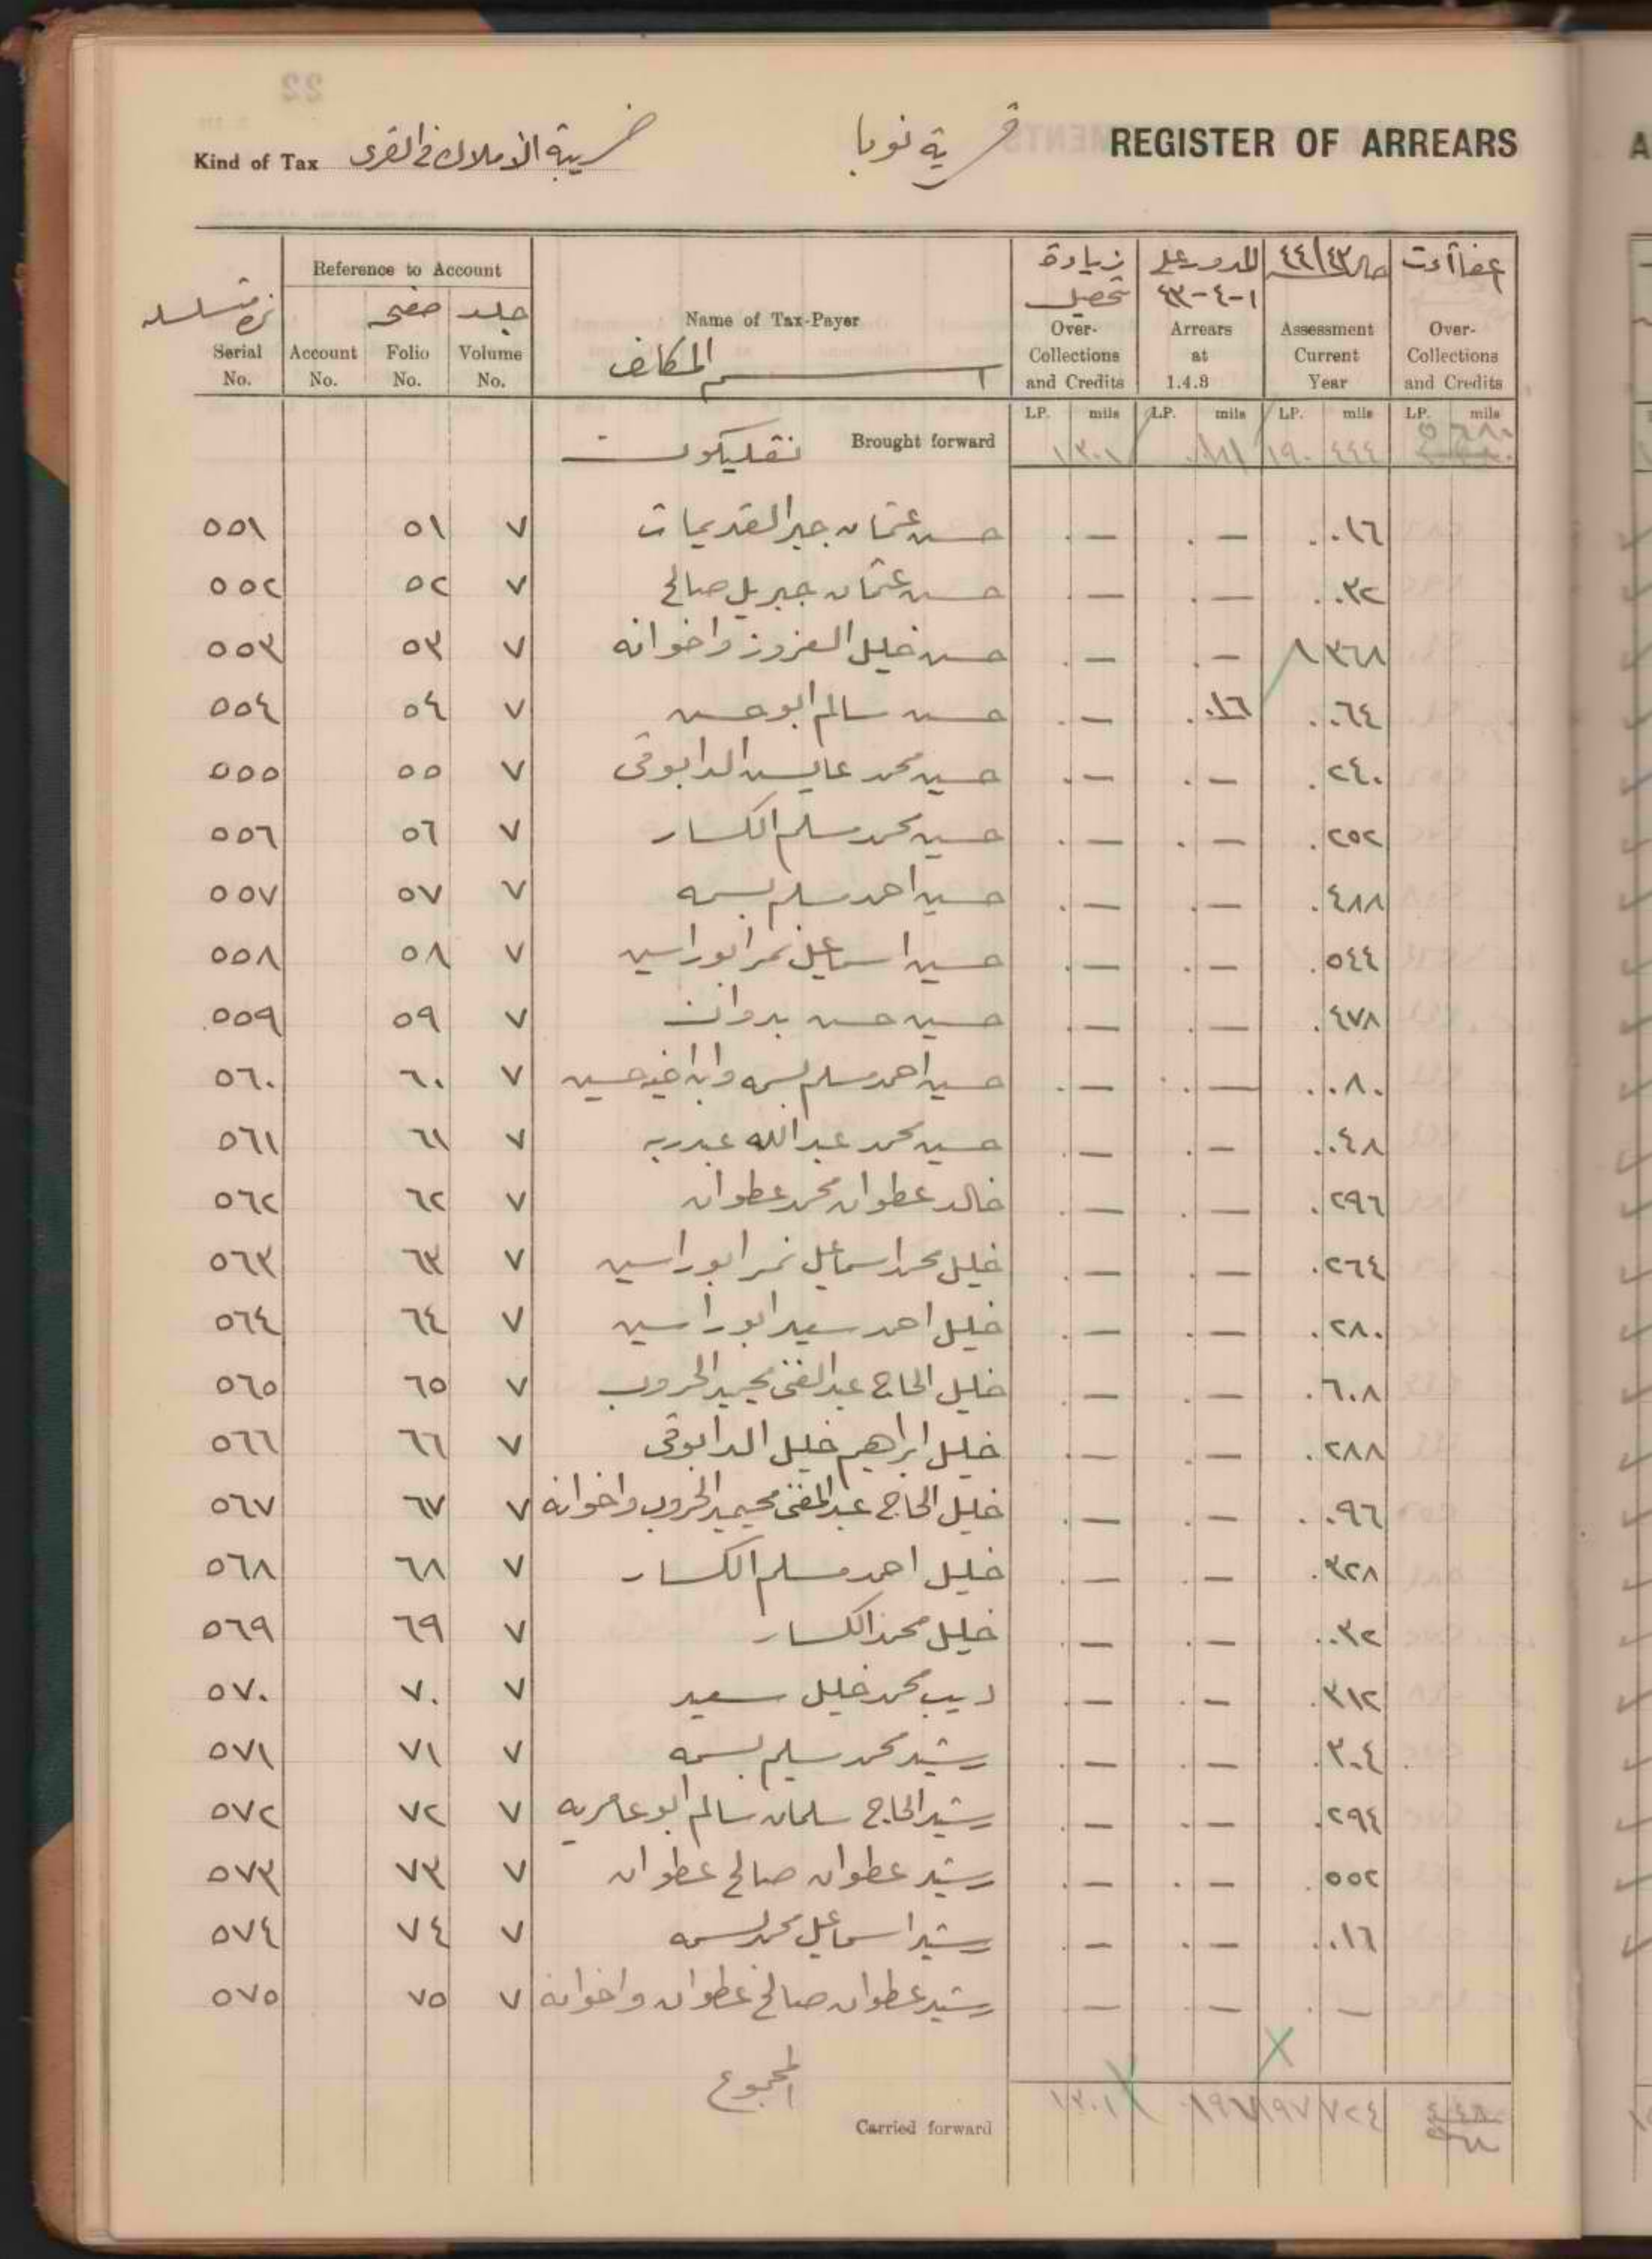 REGISTER OF ARREARS
قرية نوبا
Kind of Tax ضريبة الاملاك في القرى
Reference to Account
نمرة متسلسلة
Serial No.
Account No.
صفحة
Folio No.
جلد
Volume No.
Name of Tax-Payer
اسم المكلف
زيادة تحصيل
Over-Collections and Credits
المدور على ١-٤-٤٣
Arrears at 1.4.3
٤٤/٤٣
Assessment Current Year
Over-Collections and Credits
LP. mils LP. mils LP. mils LP. mils
Brought forward ١٣٠١ ١٩٠ ٤٤٤
٥٥١ ٥١ ٧ حسن عثمان جبر القديمات . — . — . ٠١٦
٥٥٢ ٥٢ ٧ حسن عثمان جبريل صالح . — . — . ٠٣٢
٥٥٣ ٥٣ ٧ حسن خليل العزوز واخوانه . — . — ١ ٣٦٨
٥٥٤ ٥٤ ٧ حسن سالم ابو حسن . — . ٠١٦ . ٠٦٤
٥٥٥ ٥٥ ٧ حسين محمد عايش الدابوقي . — . — . ٢٤٠
٥٥٦ ٥٦ ٧ حسين محمد مسلم الكسار . — . — . ٢٥٢
٥٥٧ ٥٧ ٧ حسين احمد مسلم بسمه . — . — . ٤٨٨
٥٥٨ ٥٨ ٧ حسين اسماعيل نمر ابو راسين . — . — . ٥٤٤
٥٥٩ ٥٩ ٧ حسين حسن بدوان . — . — . ٤٧٨
٥٦٠ ٦٠ ٧ حسين احمد مسلم بسمه وابن اخيه حسين . — . — . ٠٨٠
٥٦١ ٦١ ٧ حسين محمد عبدالله عبدربه . — . — . ٠٤٨
٥٦٢ ٦٢ ٧ خالد عطوان محمد عطوان . — . — . ٢٩٦
٥٦٣ ٦٣ ٧ خليل محمد اسماعيل نمر ابو راسين . — . — . ٢٦٤
٥٦٤ ٦٤ ٧ خليل احمد سعيد ابو راسين . — . — . ٢٨٠
٥٦٥ ٦٥ ٧ خليل الحاج عبد الغني محيميد الخروب . — . — . ٦٠٨
٥٦٦ ٦٦ ٧ خليل ابراهيم خليل الدابوقي . — . — . ٢٨٨
٥٦٧ ٦٧ ٧ خليل الحاج عبد الغني محيميد الخروب واخوانه . — . — . ٠٩٦
٥٦٨ ٦٨ ٧ خليل احمد مسلم الكسار . — . — . ٣٢٨
٥٦٩ ٦٩ ٧ خليل محمد الكسار . — . — . ٠٣٢
٥٧٠ ٧٠ ٧ ديب محمد خليل سعيد . — . — . ٣١٢
٥٧١ ٧١ ٧ رشيد محمد سليم بسمه . — . — . ٣٠٤
٥٧٢ ٧٢ ٧ رشيد الحاج سلمان سالم ابو عامريه . — . — . ٢٩٤
٥٧٣ ٧٣ ٧ رشيد عطوان صالح عطوان . — . — . ٥٥٢
٥٧٤ ٧٤ ٧ رشيد اسماعيل محمد بسمه . — . — . ٠١٦
٥٧٥ ٧٥ ٧ رشيد عطوان صالح عطوان واخوانه — . — . —
المجموع
Carried forward ١٣٠١ ١٩٧ ٧٢٤